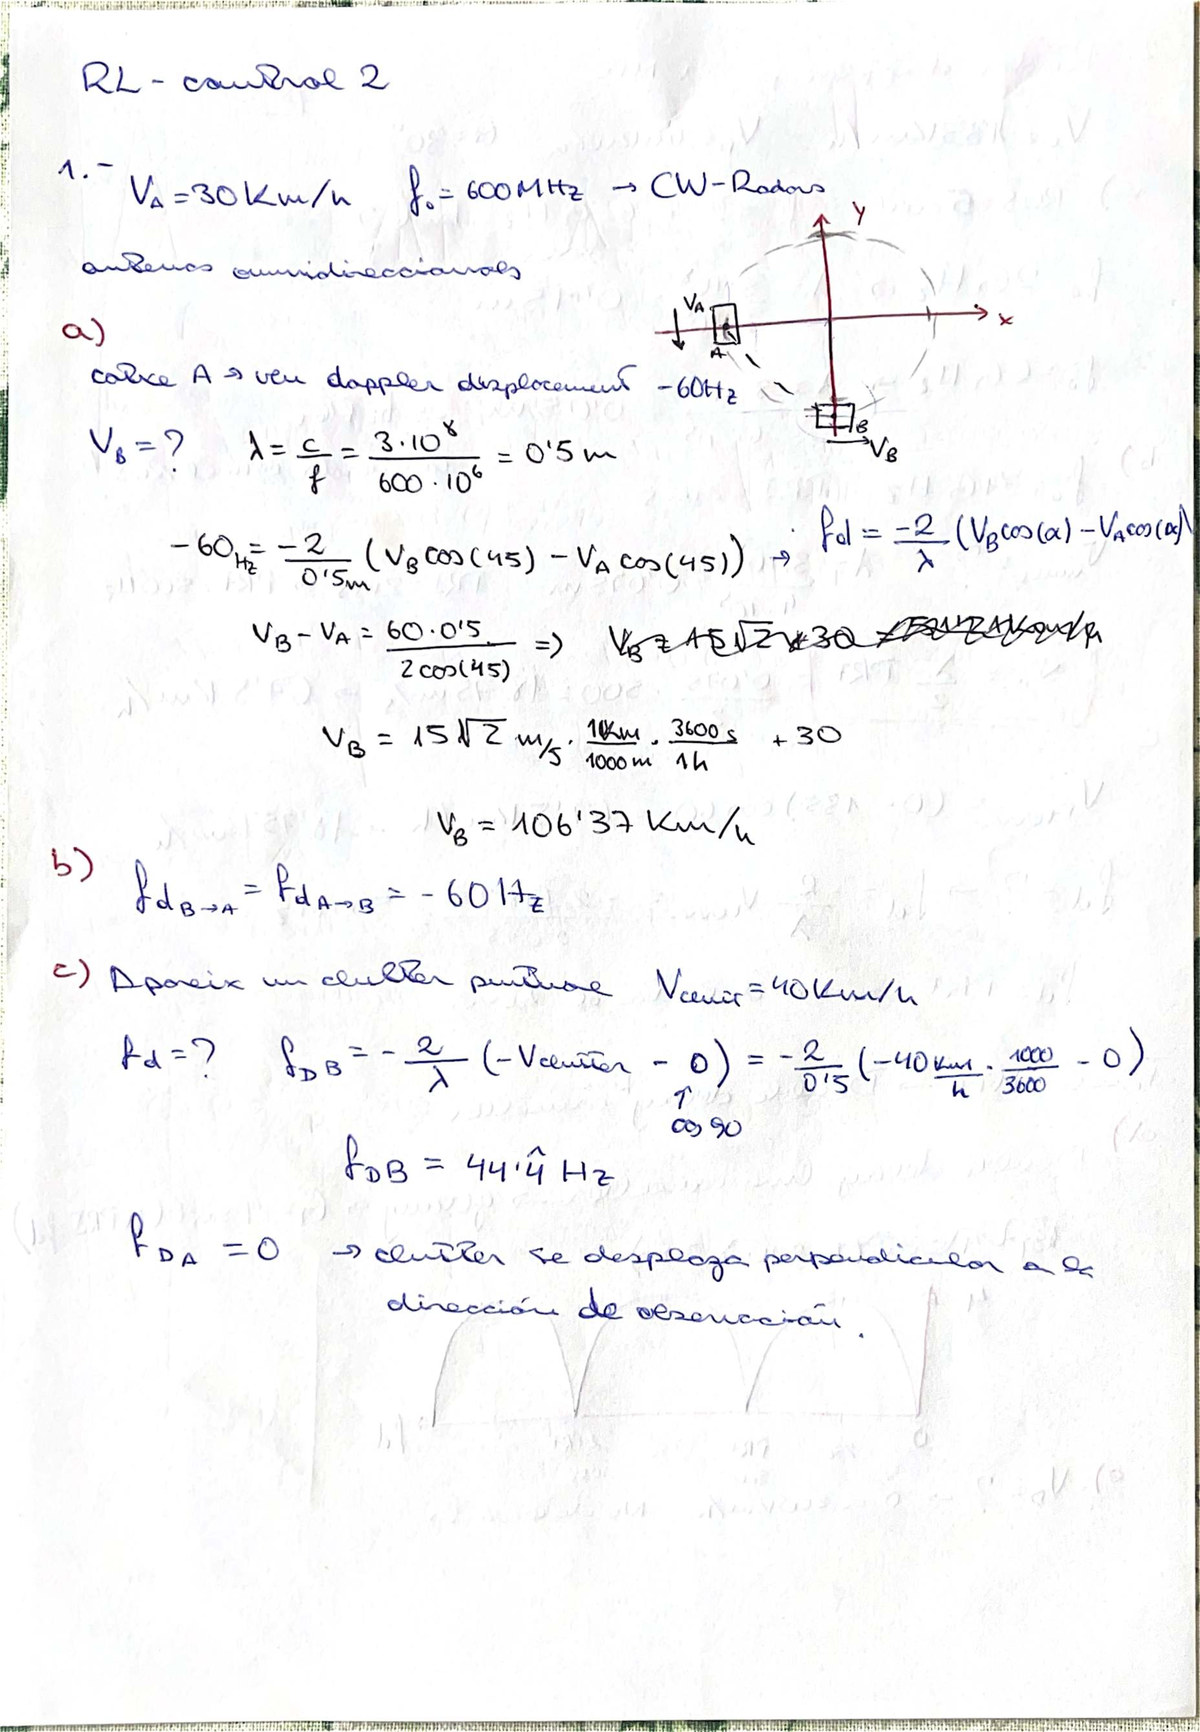 RL - control 2
1.- V_A = 30 Km/h f_0 = 600 MHz → CW-Radars
antenas omnidireccionals
Y
x
V_A
A
B
V_B
a)
cotxe A → veu doppler displacement -60Hz
V_B = ? λ = c/f = 3·10^8 / 600·10^6 = 0'5 m
-60Hz = -2/0'5m (V_B cos(45) - V_A cos(45)) → f_d = -2/λ (V_B cos(α) - V_A cos(α))
V_B - V_A = 60·0'5 / 2cos(45) =>
V_B = 15√2 m/s · 1Km/1000m · 3600s/1h + 30
V_B = 106'37 Km/h
b) f_d B→A = f_d A→B = -60Hz
c) Apareix un clutter puntual V_clutt = 40Km/h
f_d = ? f_DB = -2/λ (-V_clutter - 0) = -2/0'5 (-40 Km/h · 1000/3600 - 0)
↑
cos 90
f_DB = 44'4̂ Hz
f_DA = 0 → clutter se desplaza perpendicular a la
dirección de observación.